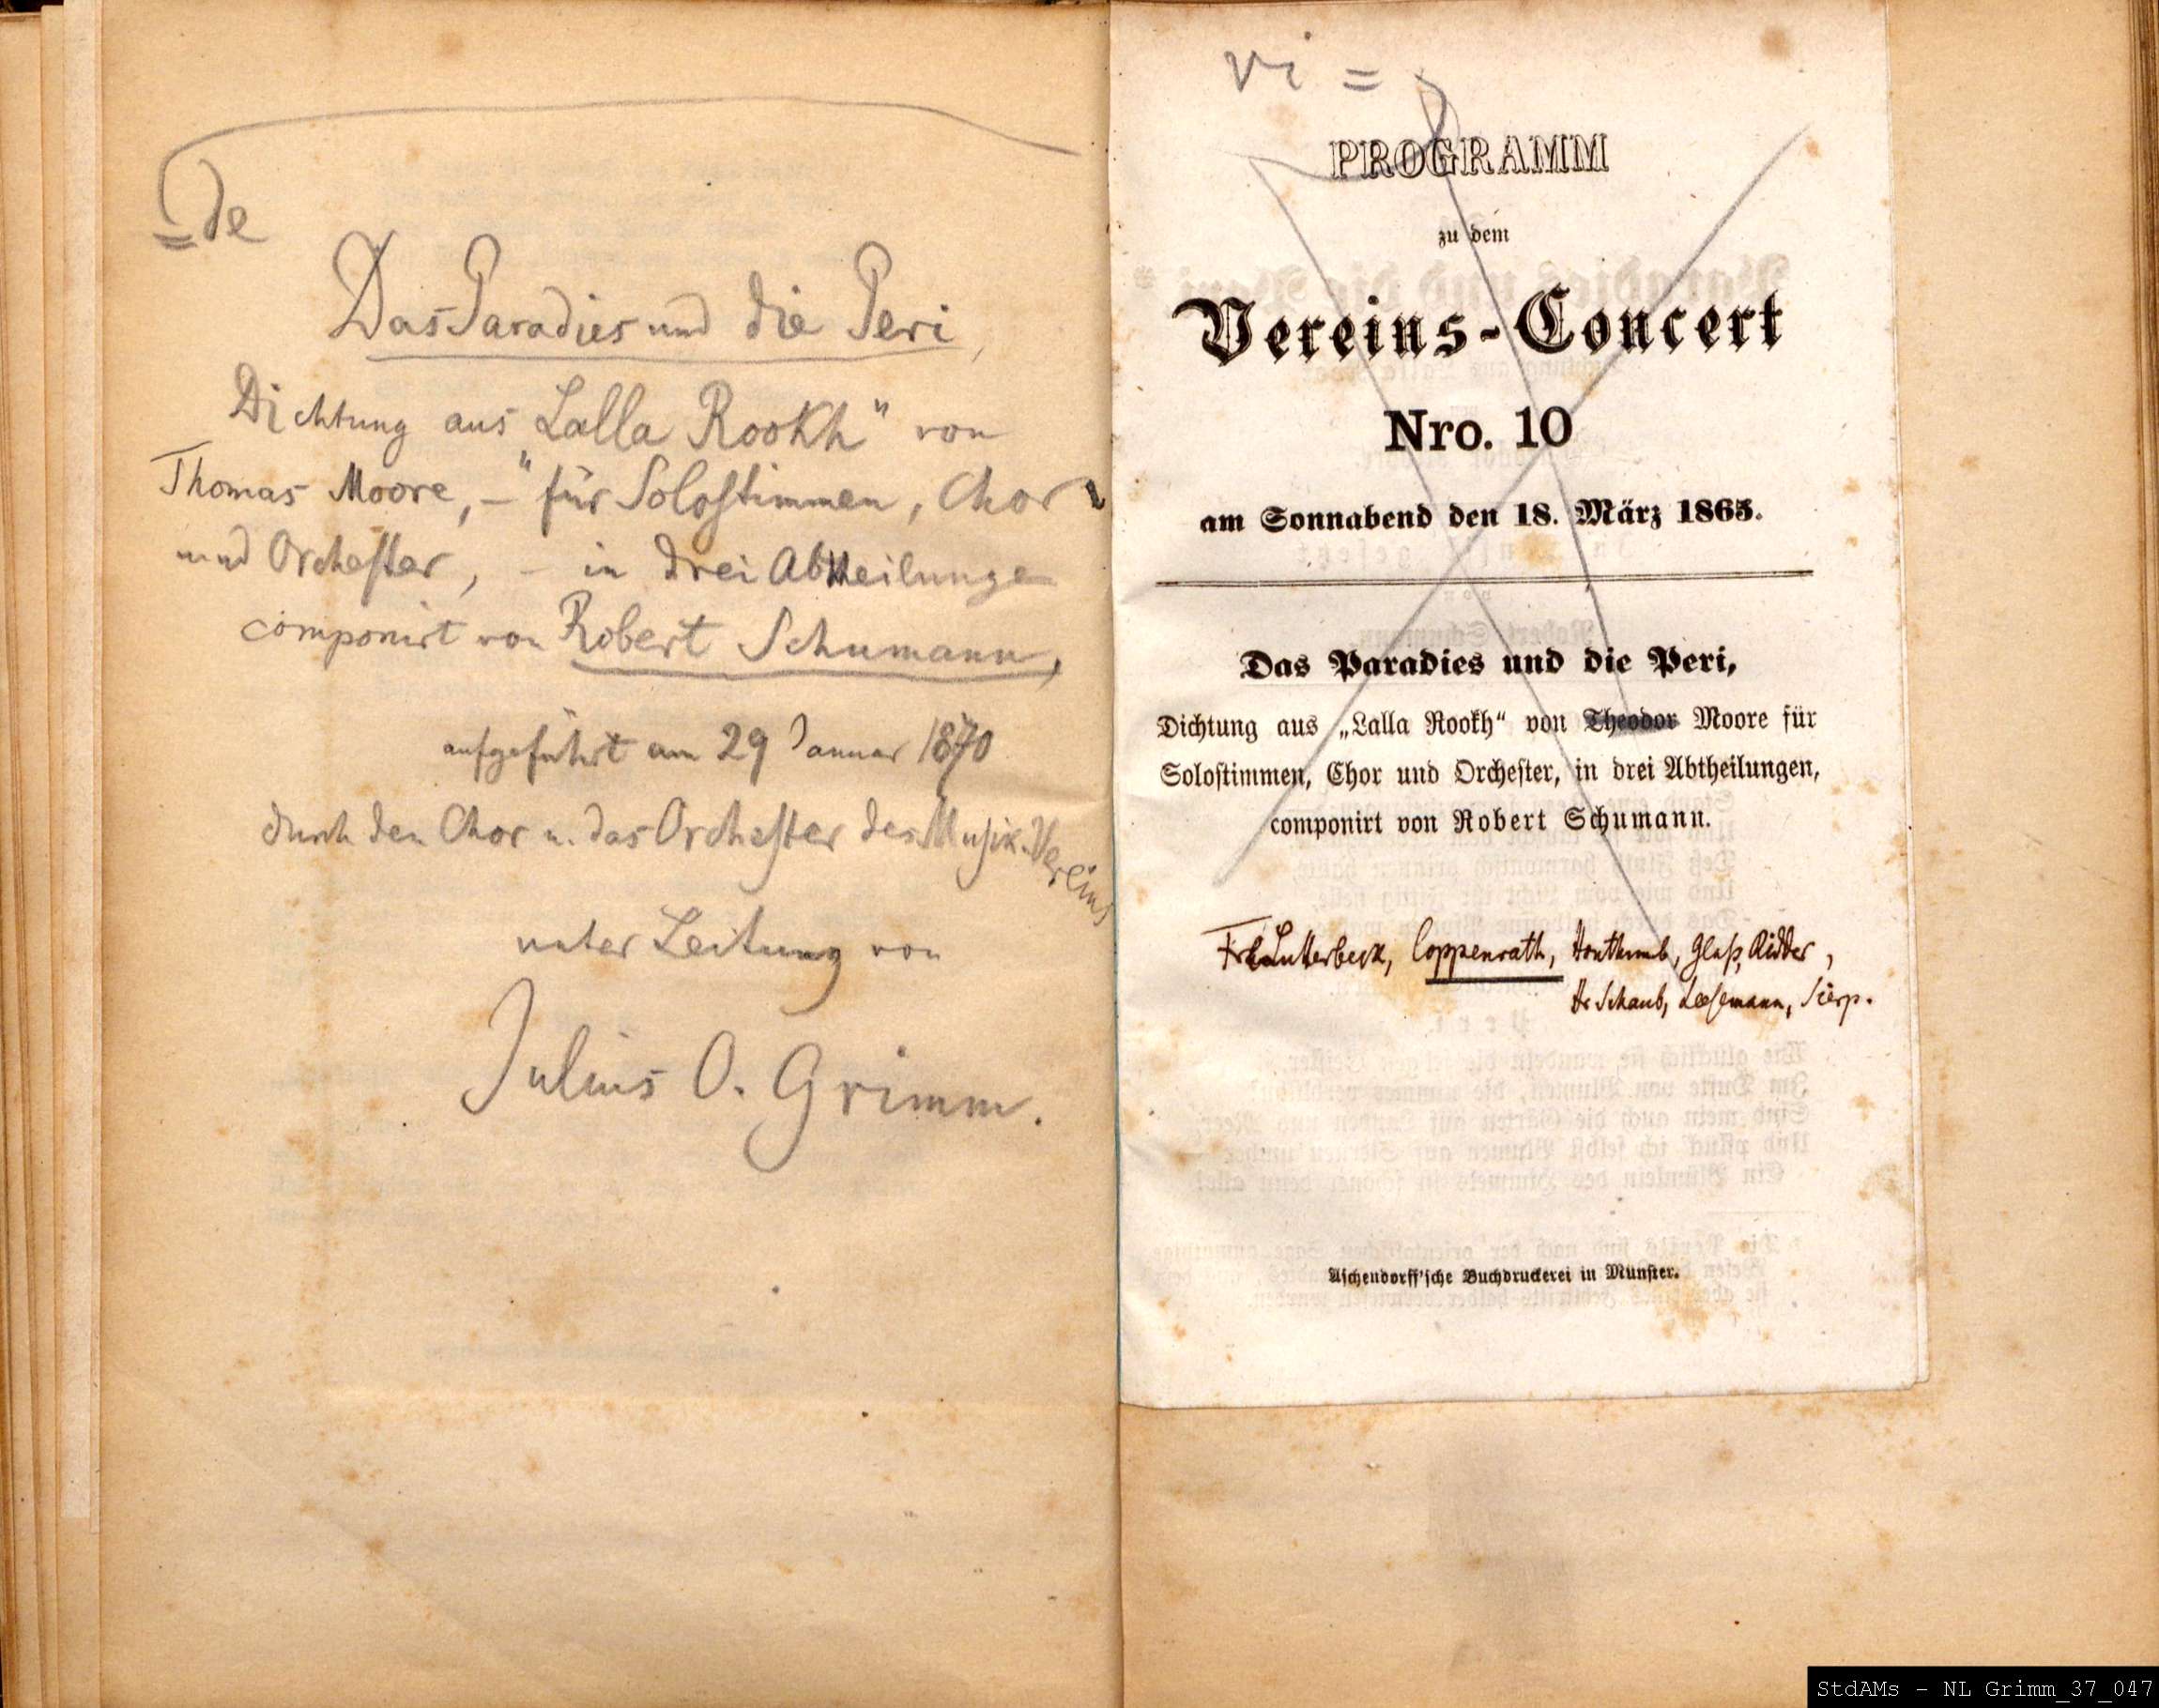 =de
Das Paradies und die Peri,
Dichtung aus "Lalla Rookh" von
Thomas Moore, – für Solostimmen, Chor
und Orchester, – in drei Abtheilunge
componirt von Robert Schumann,
aufgeführt am 29 Januar 1870
durch den Chor u. das Orchester des Musik-Vereins
unter Leitung von
Julius O. Grimm.
vi =
PROGRAMM
zu dem
Vereins-Concert
Nro. 10
am Sonnabend den 18. März 1865.
Das Paradies und die Peri,
Dichtung aus „Lalla Rookh“ von Theodor Moore für
Solostimmen, Chor und Orchester, in drei Abtheilungen,
componirt von Robert Schumann.
Frl Lutterbeck, Coppenrath, Honthumb, Glaß, Ridder,
Hr Schaub, Leesemann, Sierp.
Aschendorff'sche Buchdruckerei in Münster.
StdAMs - NL Grimm_37_047